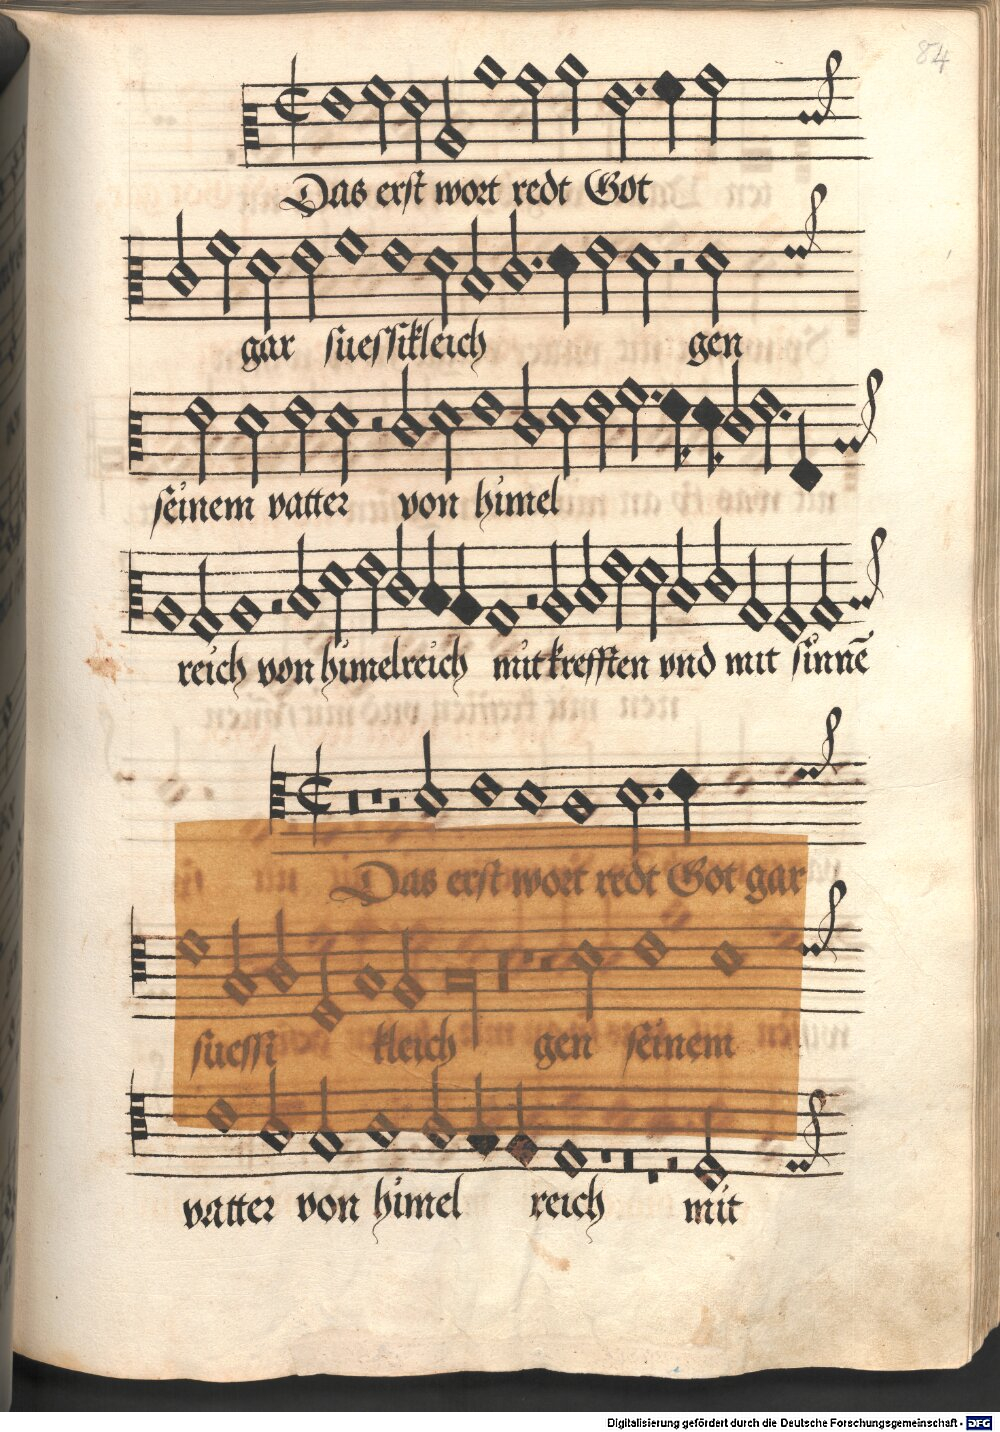 84
Das erst wort redt Got
gar süessikleich gen
seinem vatter von himel
reich von himelreich mit krefften vnd mit sinnē
Das erst wort redt Got gar
süessi kleich gen seinem
vatter von himel reich mit
Digitalisierung gefördert durch die Deutsche Forschungsgemeinschaft - DFG